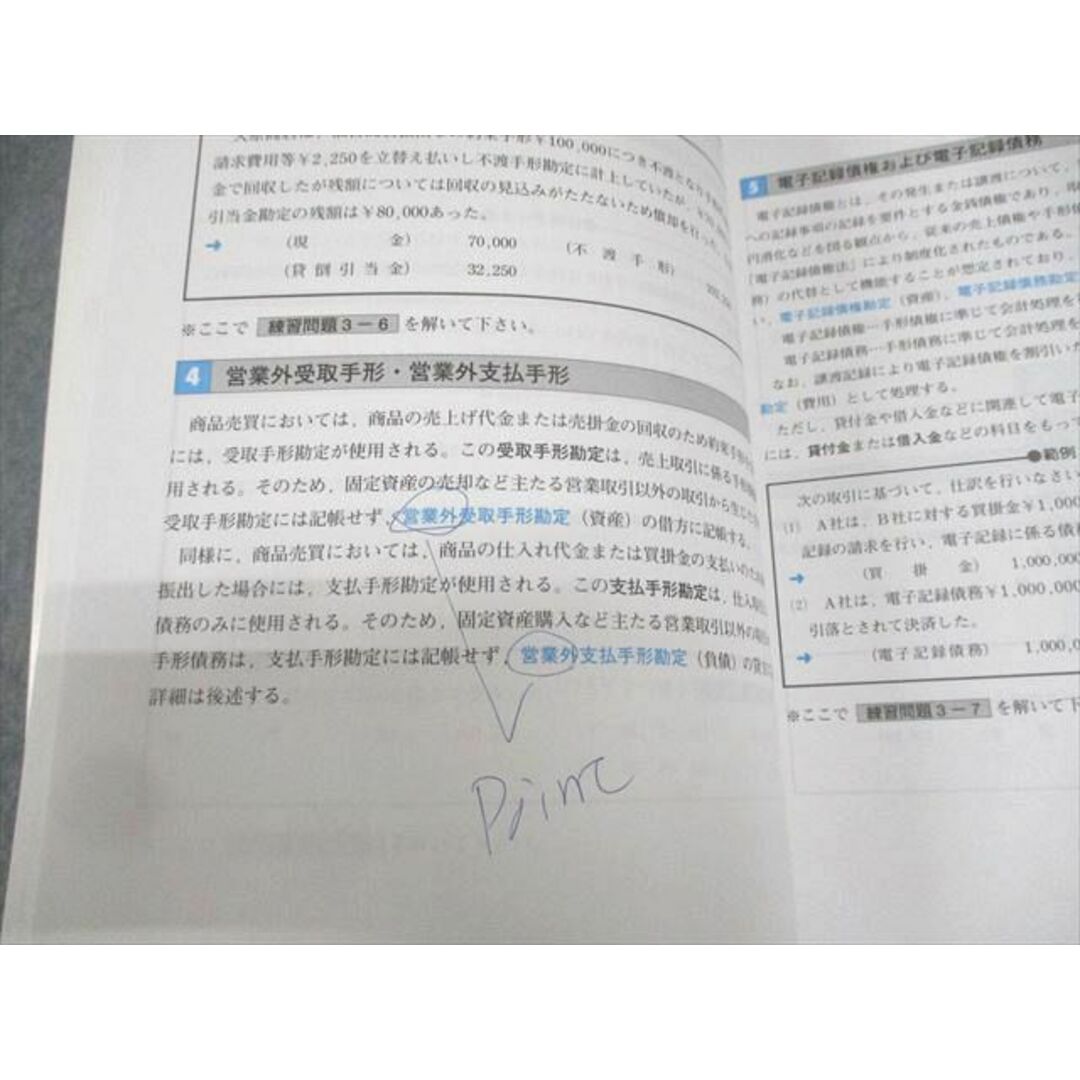 請求費用等¥2,250を立替え払いし不渡手形勘定に計上していたが、
金で回収したが残額については回収の見込みがたたないため償却を行った
引当金勘定の残額は¥80,000あった。
→ (現 金) 70,000 (不 渡 手 形)
(貸倒引当金) 32,250
※ここで 練習問題3-6 を解いて下さい。
4 営業外受取手形・営業外支払手形
商品売買においては、商品の売上げ代金または売掛金の回収のため約束手形
には、受取手形勘定が使用される。この受取手形勘定は、売上取引に係る手形
用される。そのため、固定資産の売却など主たる営業取引以外の取引から生じた
受取手形勘定には記帳せず、営業外受取手形勘定(資産)の借方に記帳する。
同様に、商品売買においては、商品の仕入れ代金または買掛金の支払いのため
振出した場合には、支払手形勘定が使用される。この支払手形勘定は、仕入
債務のみに使用される。そのため、固定資産購入など主たる営業取引以外の
手形債務は、支払手形勘定には記帳せず、営業外支払手形勘定(負債)の貸
詳細は後述する。
Point
5 電子記録債権および電子記録債務
電子記録債権とは、その発生または譲渡について、
への記録事項の記録を要件とする金銭債権であり、
円滑化などを図る観点から、従来の売上債権や手形
「電子記録債権法」により制度化されたものである。
務)の代替として機能することが想定されており、
い、電子記録債権勘定(資産)、電子記録債務勘定
電子記録債権…手形債権に準じて会計処理を
電子記録債務…手形債務に準じて会計処理を
なお、譲渡記録により電子記録債権を割引いた
勘定(費用)として処理する。
ただし、貸付金や借入金などに関連して電子
には、貸付金または借入金などの科目をもって
●範例
次の取引に基づいて、仕訳を行いなさい
(1) A社は、B社に対する買掛金¥1,000
記録の請求を行い、電子記録に係る債
→ (買 掛 金) 1,000,000
(2) A社は、電子記録債務¥1,000,000
引落とされて決済した。
→ (電子記録債務) 1,000,0
※ここで 練習問題3-7 を解いて下